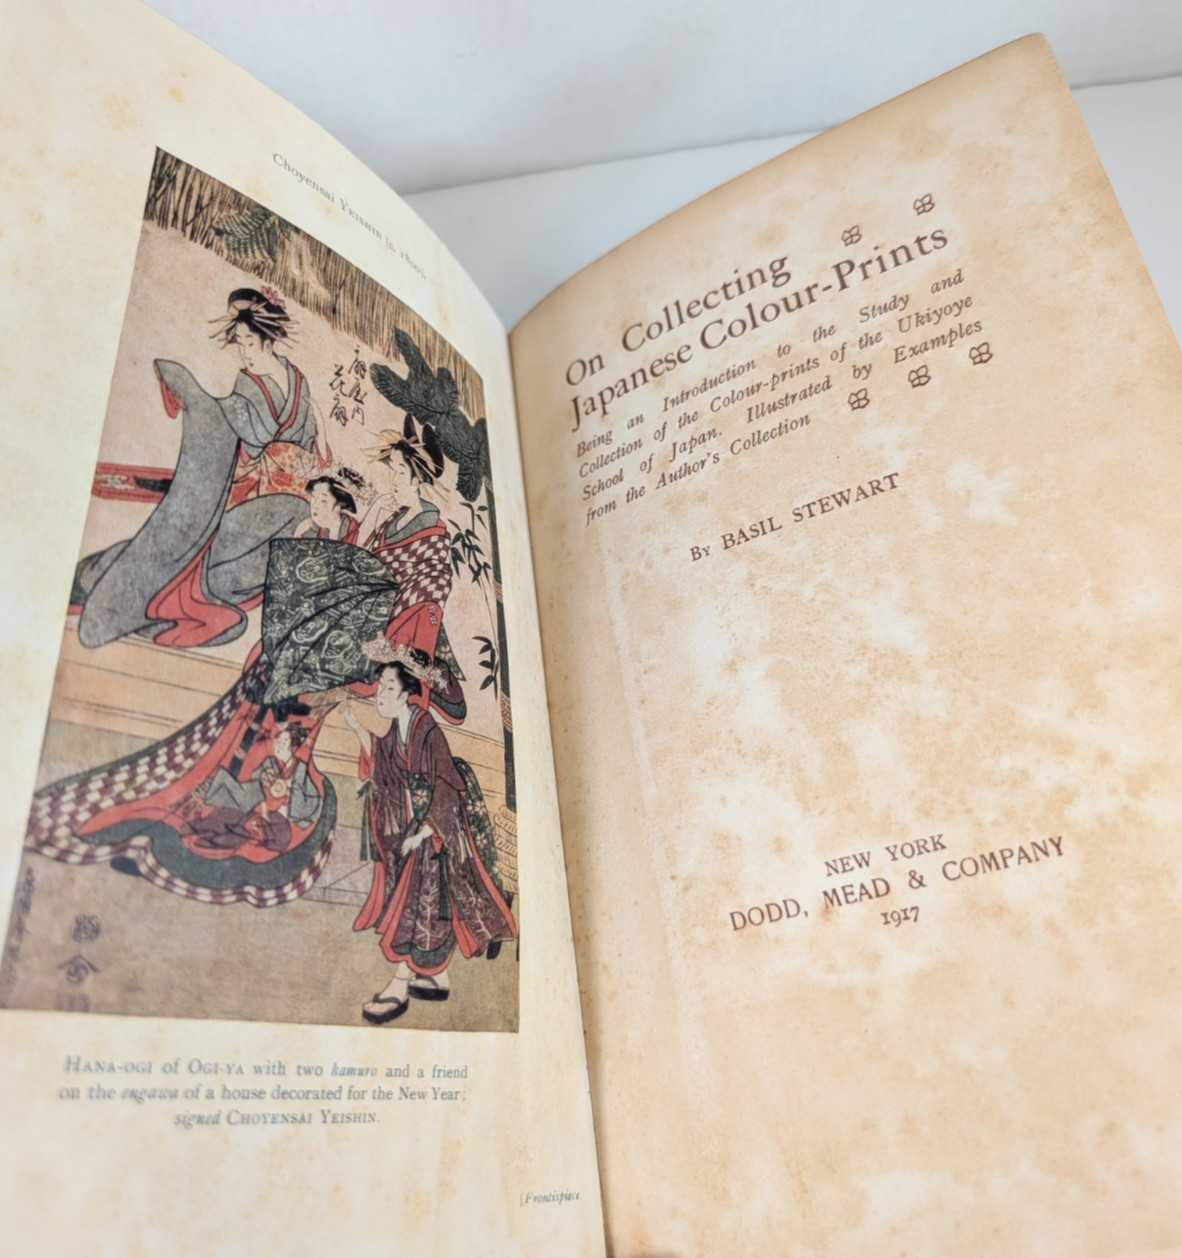 Choyensai Yeishin (c. 1800).
扇屋内
花扇
Hana-ogi of Ogi-ya with two kamuro and a friend
on the engawa of a house decorated for the New Year;
signed Choyensai Yeishin.
[Frontispiece.
On Collecting
Japanese Colour-Prints
Being an Introduction to the Study and
Collection of the Colour-prints of the Ukiyoye
School of Japan. Illustrated by Examples
from the Author's Collection
By BASIL STEWART
NEW YORK
DODD, MEAD & COMPANY
1917